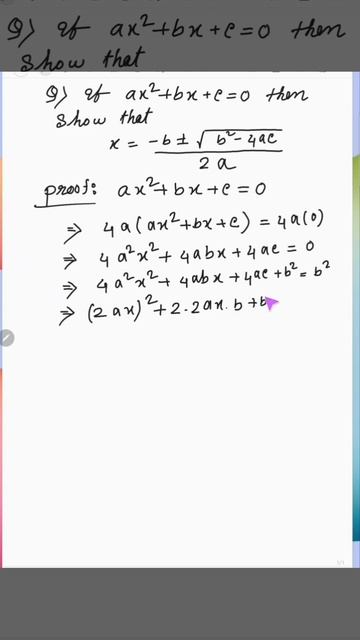 Q) If ax²+bx+c=0 then
show that
Q) If ax²+bx+c=0 then
show that
x = (-b ± √(b²-4ac)) / 2a
proof: ax²+bx+c=0
⇒ 4a(ax²+bx+c) = 4a(0)
⇒ 4a²x²+4abx+4ac = 0
⇒ 4a²x²+4abx+4ac+b² = b²
⇒ (2ax)²+2.2ax.b+b
1/1